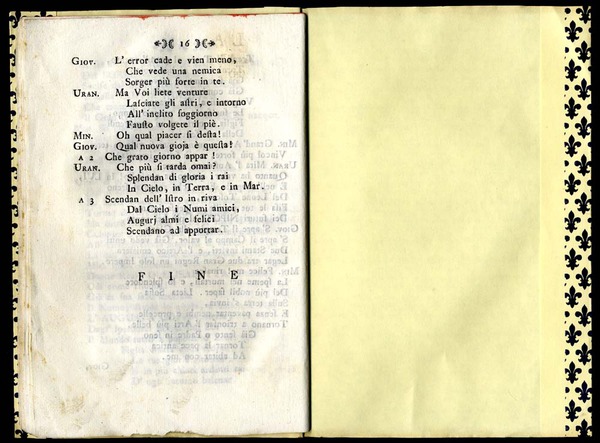 16
GIOV. L' error cade e vien meno,
Che vede una nemica
Sorger più forte in te.
URAN. Ma Voi liete venture
Lasciate gli astri, e intorno
All' inclito soggiorno
Fausto volgete il piè.
MIN. Oh qual piacer si desta!
GIOV. Qual nuova gioja è questa!
A 2 Che grato giorno appar!
URAN. Che più si tarda omai?
Splendan di gloria i rai
In Cielo, in Terra, e in Mar.
A 3 Scendan dell' Istro in riva
Dal Cielo i Numi amici,
Augurj almi e felici
Scendano ad apportar.
FINE